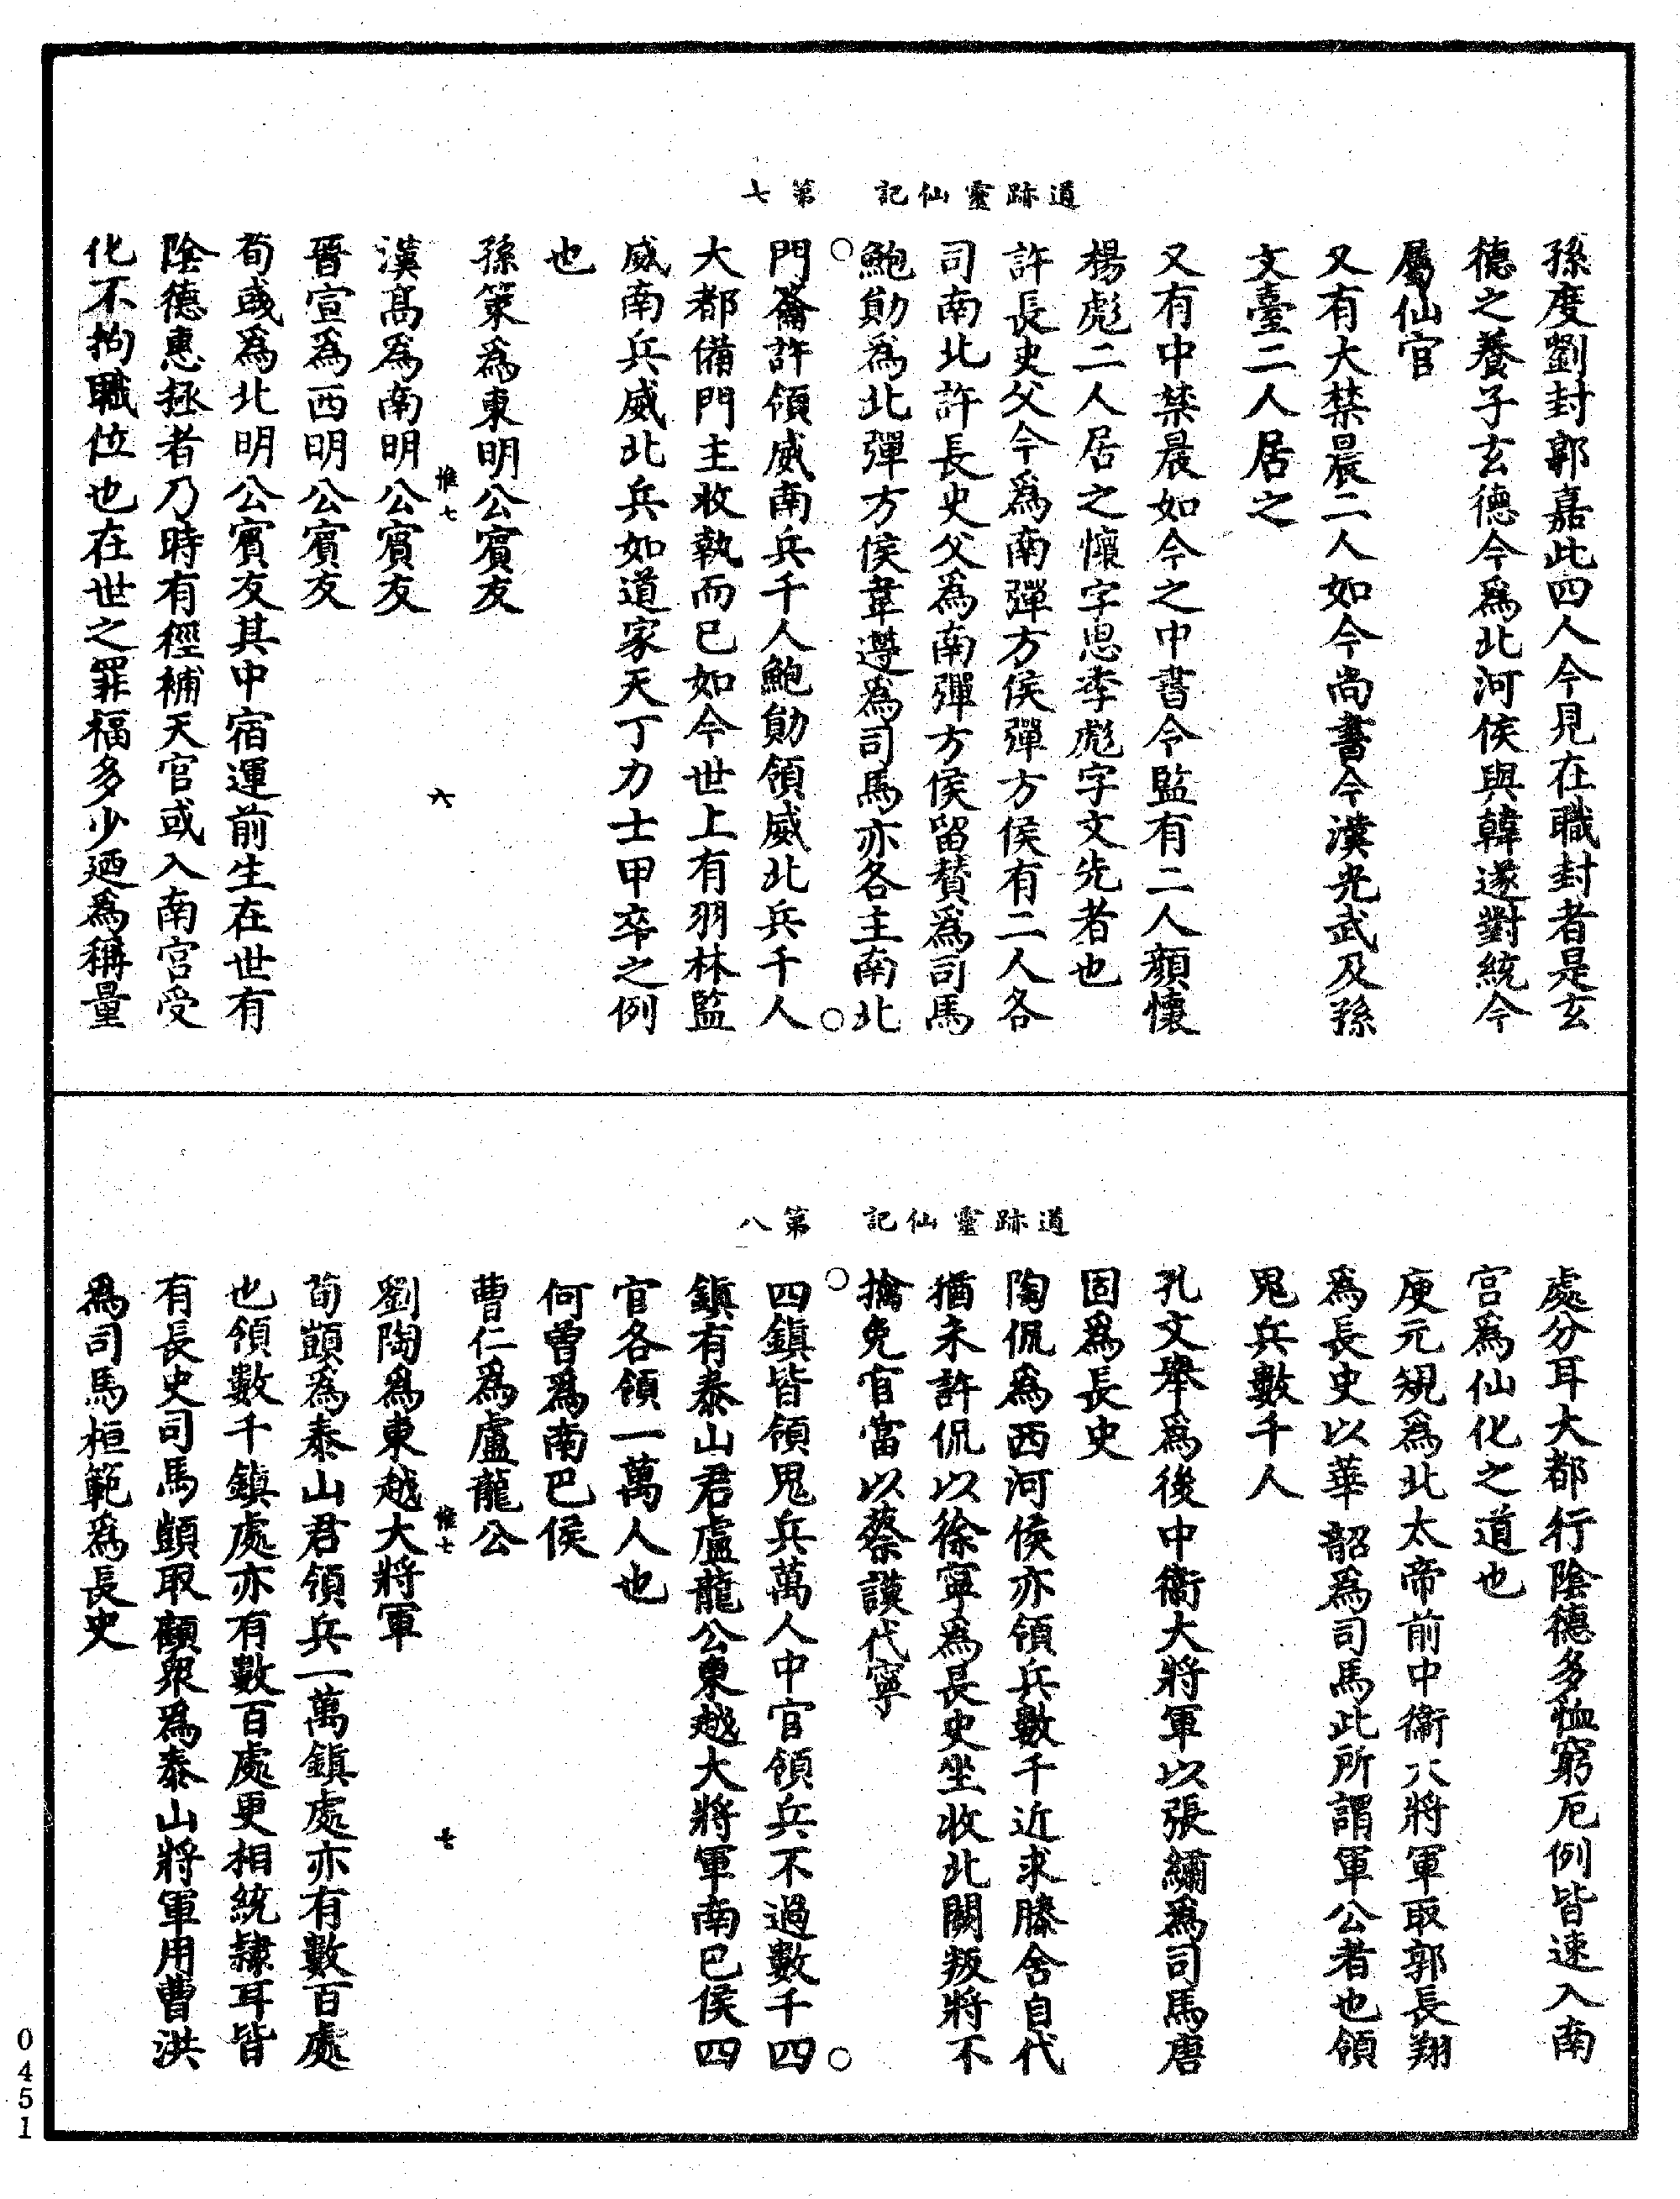 道跡靈仙記 第七
孫度劉封郭嘉此四人今見在職封者是玄
德之養子玄德今爲北河侯與韓遂對統今
屬仙官
又有大禁晨二人如今尚書令漢光武及孫
文臺二人居之
又有中禁晨如今之中書令監有二人顏懷
楊彪二人居之懷字思季彪字文先者也
許長史父今爲南彈方侯彈方侯有二人各
司南北許長史父爲南彈方侯留賛爲司馬
鮑勛爲北彈方侯韋遵爲司馬亦各主南北
門籥許領威南兵千人鮑勛領威北兵千人
大都備門主收執而已如今世上有羽林監
威南兵威北兵如道家天丁力士甲卒之例
也
孫策爲東明公賓友
惟七 六
漢高爲南明公賓友
晉宣爲西明公賓友
荀彧爲北明公賓友其中宿運前生在世有
陰德惠拯者乃時有徑補天官或入南宮受
化不拘職位也在世之罪福多少迺爲稱量
道跡靈仙記 第八
處分耳大都行陰德多恤窮厄例皆速入南
宮爲仙化之道也
庾元規爲北太帝前中衛大將軍取郭長翔
爲長史以華韶爲司馬此所謂軍公者也領
鬼兵數千人
孔文舉爲後中衛大將軍以張繡爲司馬唐
固爲長史
陶侃爲西河侯亦領兵數千近求滕含自代
猶未許侃以徐寧爲長史坐收北闕叛將不
擒免官當以蔡謨代寧
四鎮皆領鬼兵萬人中官領兵不過數千四
鎮有泰山君盧龍公東越大將軍南巴侯四
官各領一萬人也
何曾爲南巴侯
曹仁爲盧龍公
惟七 七
劉陶爲東越大將軍
荀顗爲泰山君領兵一萬鎮處亦有數百處
也領數千鎮處亦有數百處更相統隸耳皆
有長史司馬顗取顧衆爲泰山將軍用曹洪
爲司馬桓範爲長史
0451